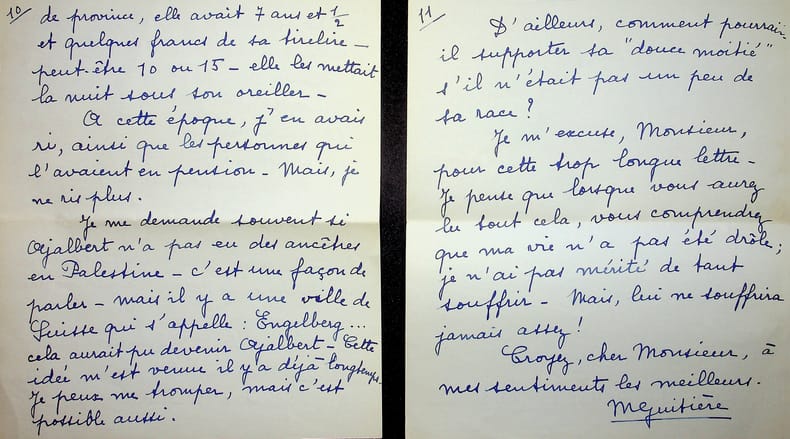 10/
de province, elle avait 7 ans et 1/2
et quelques francs de sa tirelire –
peut-être 10 ou 15 – elle les mettait
la nuit sous son oreiller –
A cette époque, j'en avais
ri, ainsi que les personnes qui
l'avaient en pension – Mais, je
ne ris plus.
Je me demande souvent si
Ajalbert n'a pas eu des ancêtres
en Palestine – c'est une façon de
parler – mais il y a une ville de
Suisse qui s'appelle : Engelberg...
cela aurait pu devenir Ajalbert – Cette
idée m'est venue il y a déjà longtemps.
Je peux me tromper, mais c'est
possible aussi.
11/
D'ailleurs, comment pourrait-
il supporter sa "douce moitié"
s'il n'était pas un peu de
sa race ?
Je m'excuse, Monsieur,
pour cette trop longue lettre –
Je pense que lorsque vous aurez
lu tout cela, vous comprendrez
que ma vie n'a pas été drôle ;
je n'ai pas mérité de tant
souffrir – Mais, lui ne souffrira
jamais assez !
Croyez, cher Monsieur, à
mes sentiments les meilleurs.
MGuitière